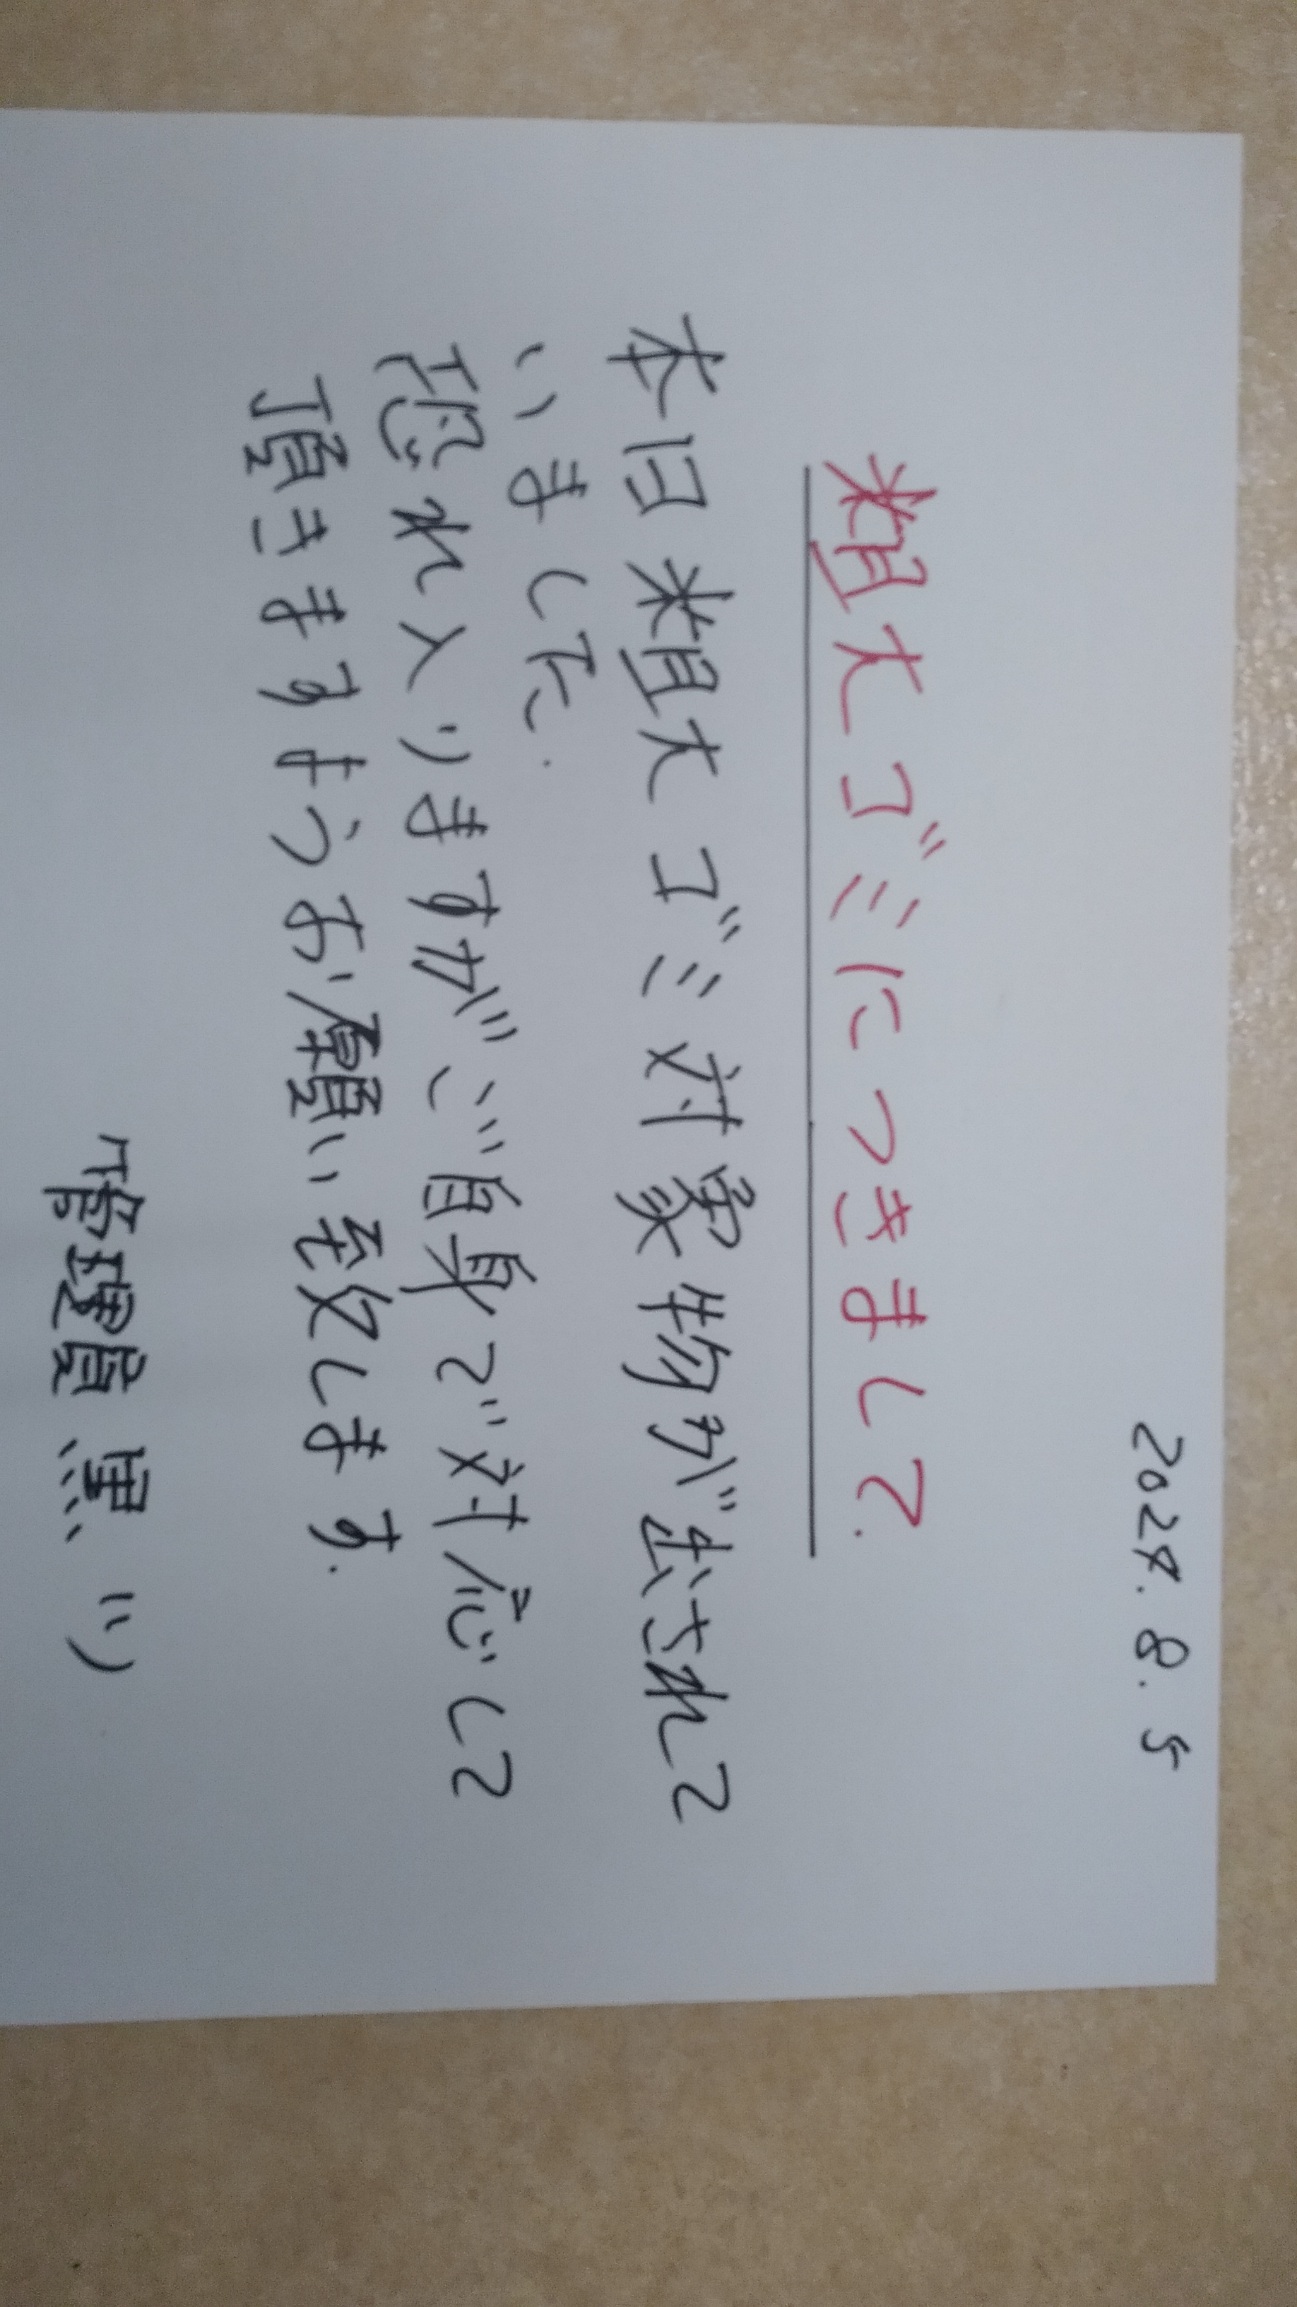 2024.8.5
粗大ゴミにつきまして.
本日粗大ゴミ対象物が出されて
いました.
恐れ入りますがご自身で対応して
頂きますようお願い致します.
管理員 黒ソ